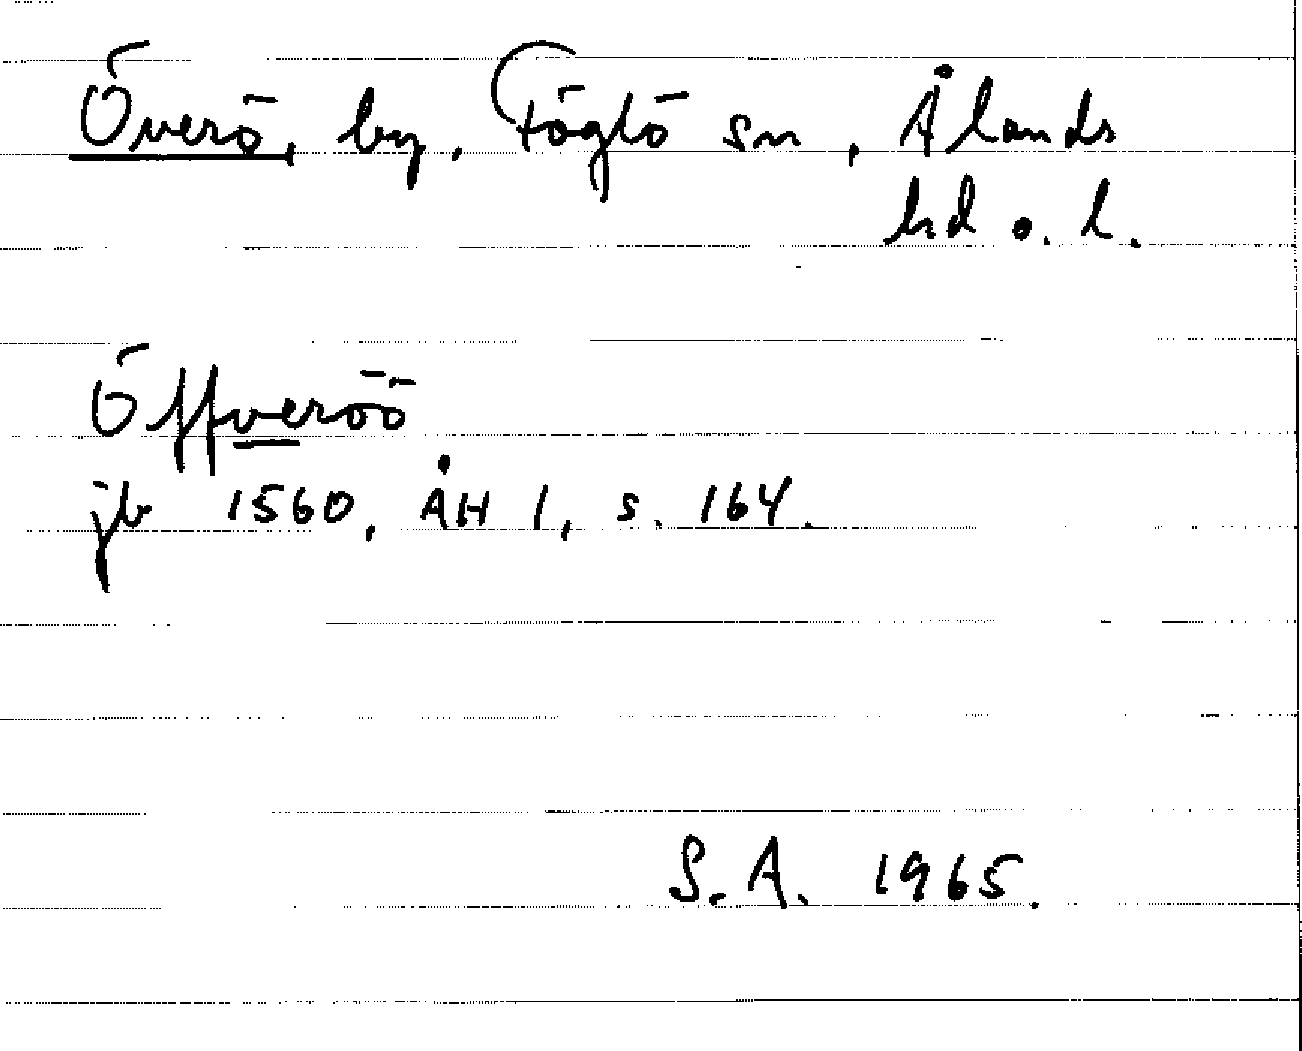 Överö, by, Föglö sn, Ålands
hd o. l.
Öffveröö
jb 1560, ÅH 1, s. 164.
S.A. 1965.